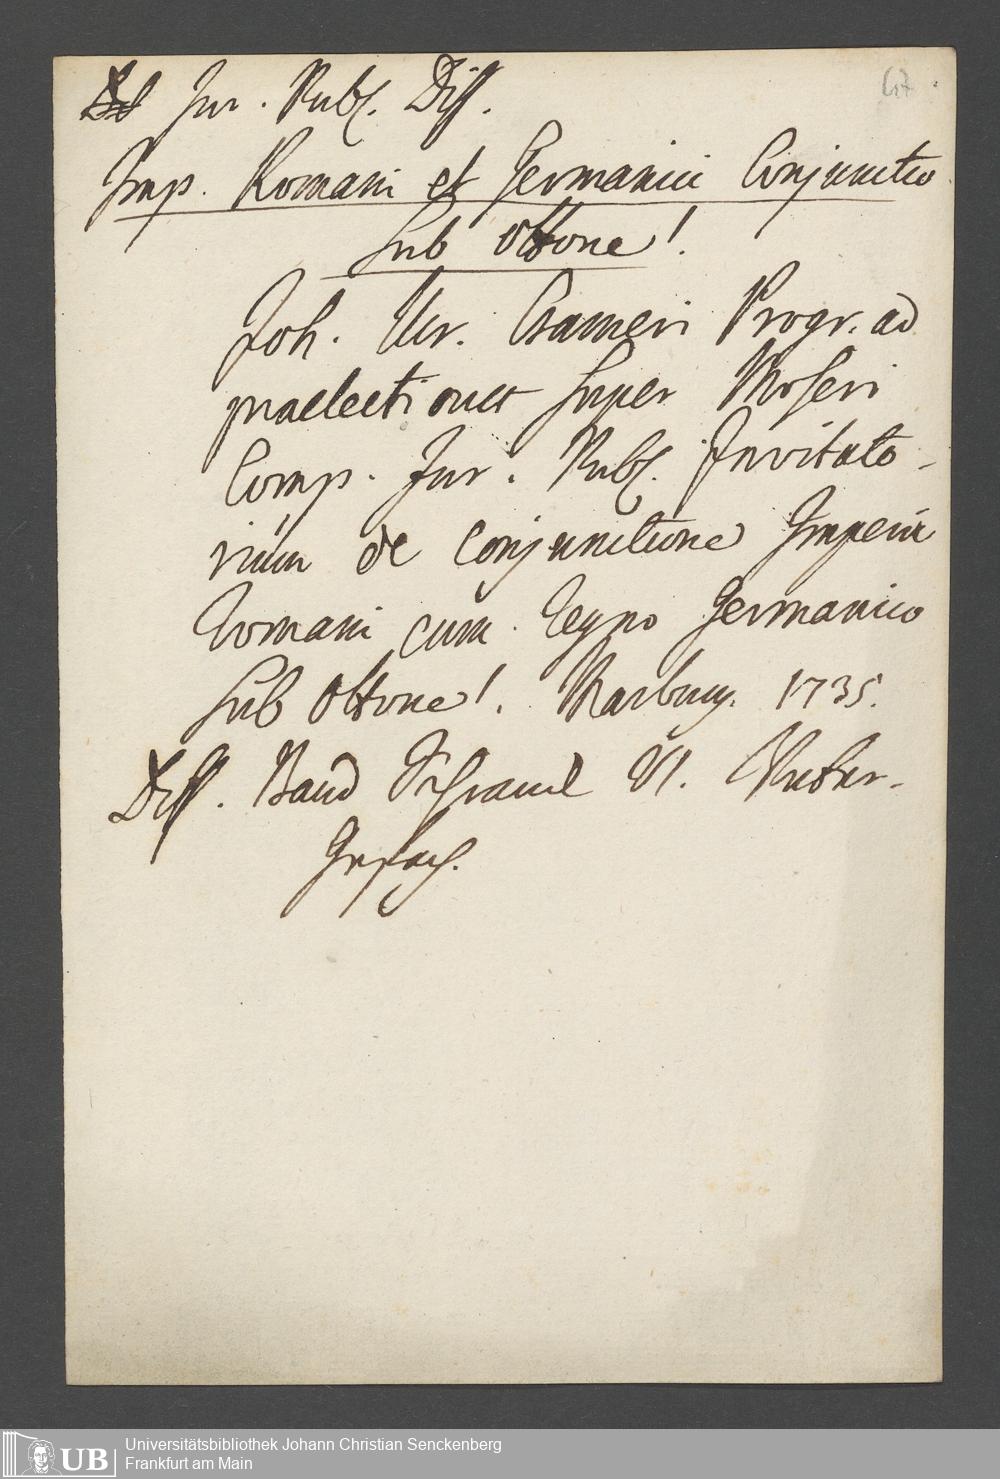 67.
Jur. Publ. Diss.
Imp. Romani et Germanici Conjunctio
sub Ottone I.
Joh. Ulr. Crameri Progr. ad
praelectiones super Moseri
Comp. Jur. Publ. Invitato-
rium de conjunctione Imperii
Romani cum regno Germanico
sub Ottone I. Marburg. 1735.
Diss. Band Schranck VI.
UB
Universitätsbibliothek Johann Christian Senckenberg
Frankfurt am Main